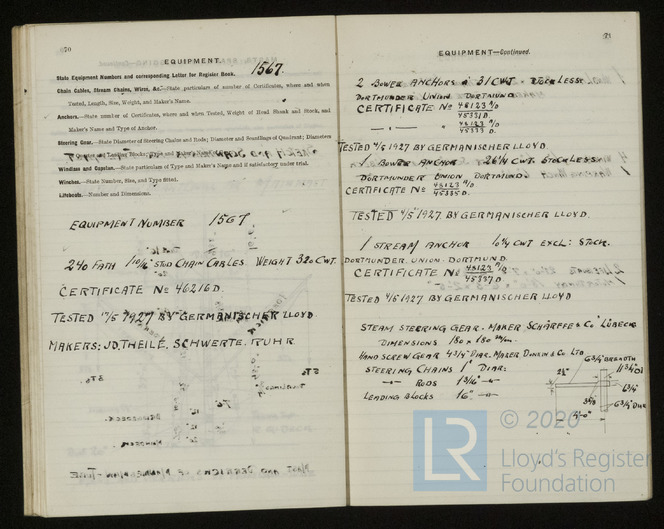 70
EQUIPMENT.
State Equipment Numbers and corresponding Letter for Register Book. 1567.
Chain Cables, Stream Chains, Wires, &c.—State particulars of number of Certificates, where and when
Tested, Length, Size, Weight, and Maker's Name.
Anchors.—State number of Certificates, where and when Tested, Weight of Head Shank and Stock, and
Maker's Name and Type of Anchor.
Steering Gear.—State Diameter of Steering Chains and Rods; Diameter and Scantlings of Quadrant; Diameters
Windlass and Capstan.—State particulars of Type and Maker's Name and if satisfactory under trial.
Winches.—State Number, Size, and Type fitted.
Lifeboats.—Number and Dimensions.
EQUIPMENT NUMBER 1567
240 FATH 1 10/16" STUD CHAIN CABLES. WEIGHT 320 CWT.
CERTIFICATE No 46216 D.
TESTED /5 1927 BY GERMANISCHER LLOYD
MAKERS: J.D. THEILÉ, SCHWERTE. RUHR
71
EQUIPMENT—Continued.
2 BOWER ANCHORS à 31 CWT STOCKLESS.
DORTMUNDER UNION DORTMUND.
CERTIFICATE No 45123 D
45331 D.
45123 D
45333 D.
TESTED 4/5 1927 BY GERMANISCHER LLOYD
1 BOWER ANCHOR 26 1/4 CWT. STOCKLESS
DORTMUNDER UNION DORTMUND.
CERTIFICATE No 45123 D
45335 D.
TESTED 4/5 1927 BY GERMANISCHER LLOYD.
1 STREAM ANCHOR CWT EXCL: STOCK.
DORTMUNDER. UNION. DORTMUND.
CERTIFICATE No 45123 D
45337 D
TESTED 4/5 1927 BY GERMANISCHER LLOYD
STEAM STEERING GEAR. MAKER SCHÄRFFE & Co LÜBECK
DIMENSIONS 180 x 180 m/m.
HAND SCREW GEAR 4 3/4" DIAR. MAKER DONKIN & Co LTD
STEERING CHAINS 1" DIAR:
RODS 1 3/16"
LEADING BLOCKS 16"
6 3/4" BREADTH
6 3/4" DIA
© 2020
LR
Lloyd's Register
Foundation